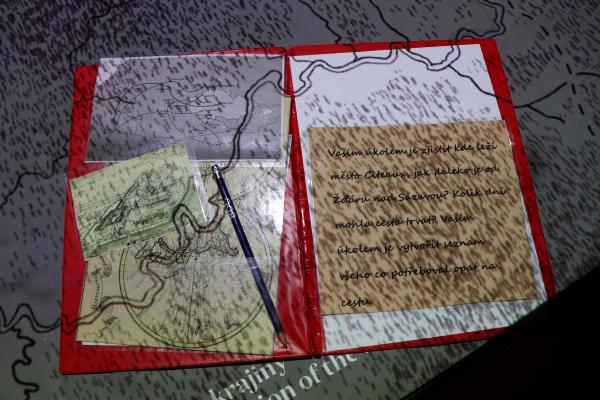 Vaším úkolem je zjistit kde leží
město Citeaux, jak daleko je od
Žďáru nad Sázavou? Kolik dní
mohla cesta trvat? Vaším
úkolem je vytvořit seznam
všeho co potřeboval opat na
cestu.
krajiny
ion of the